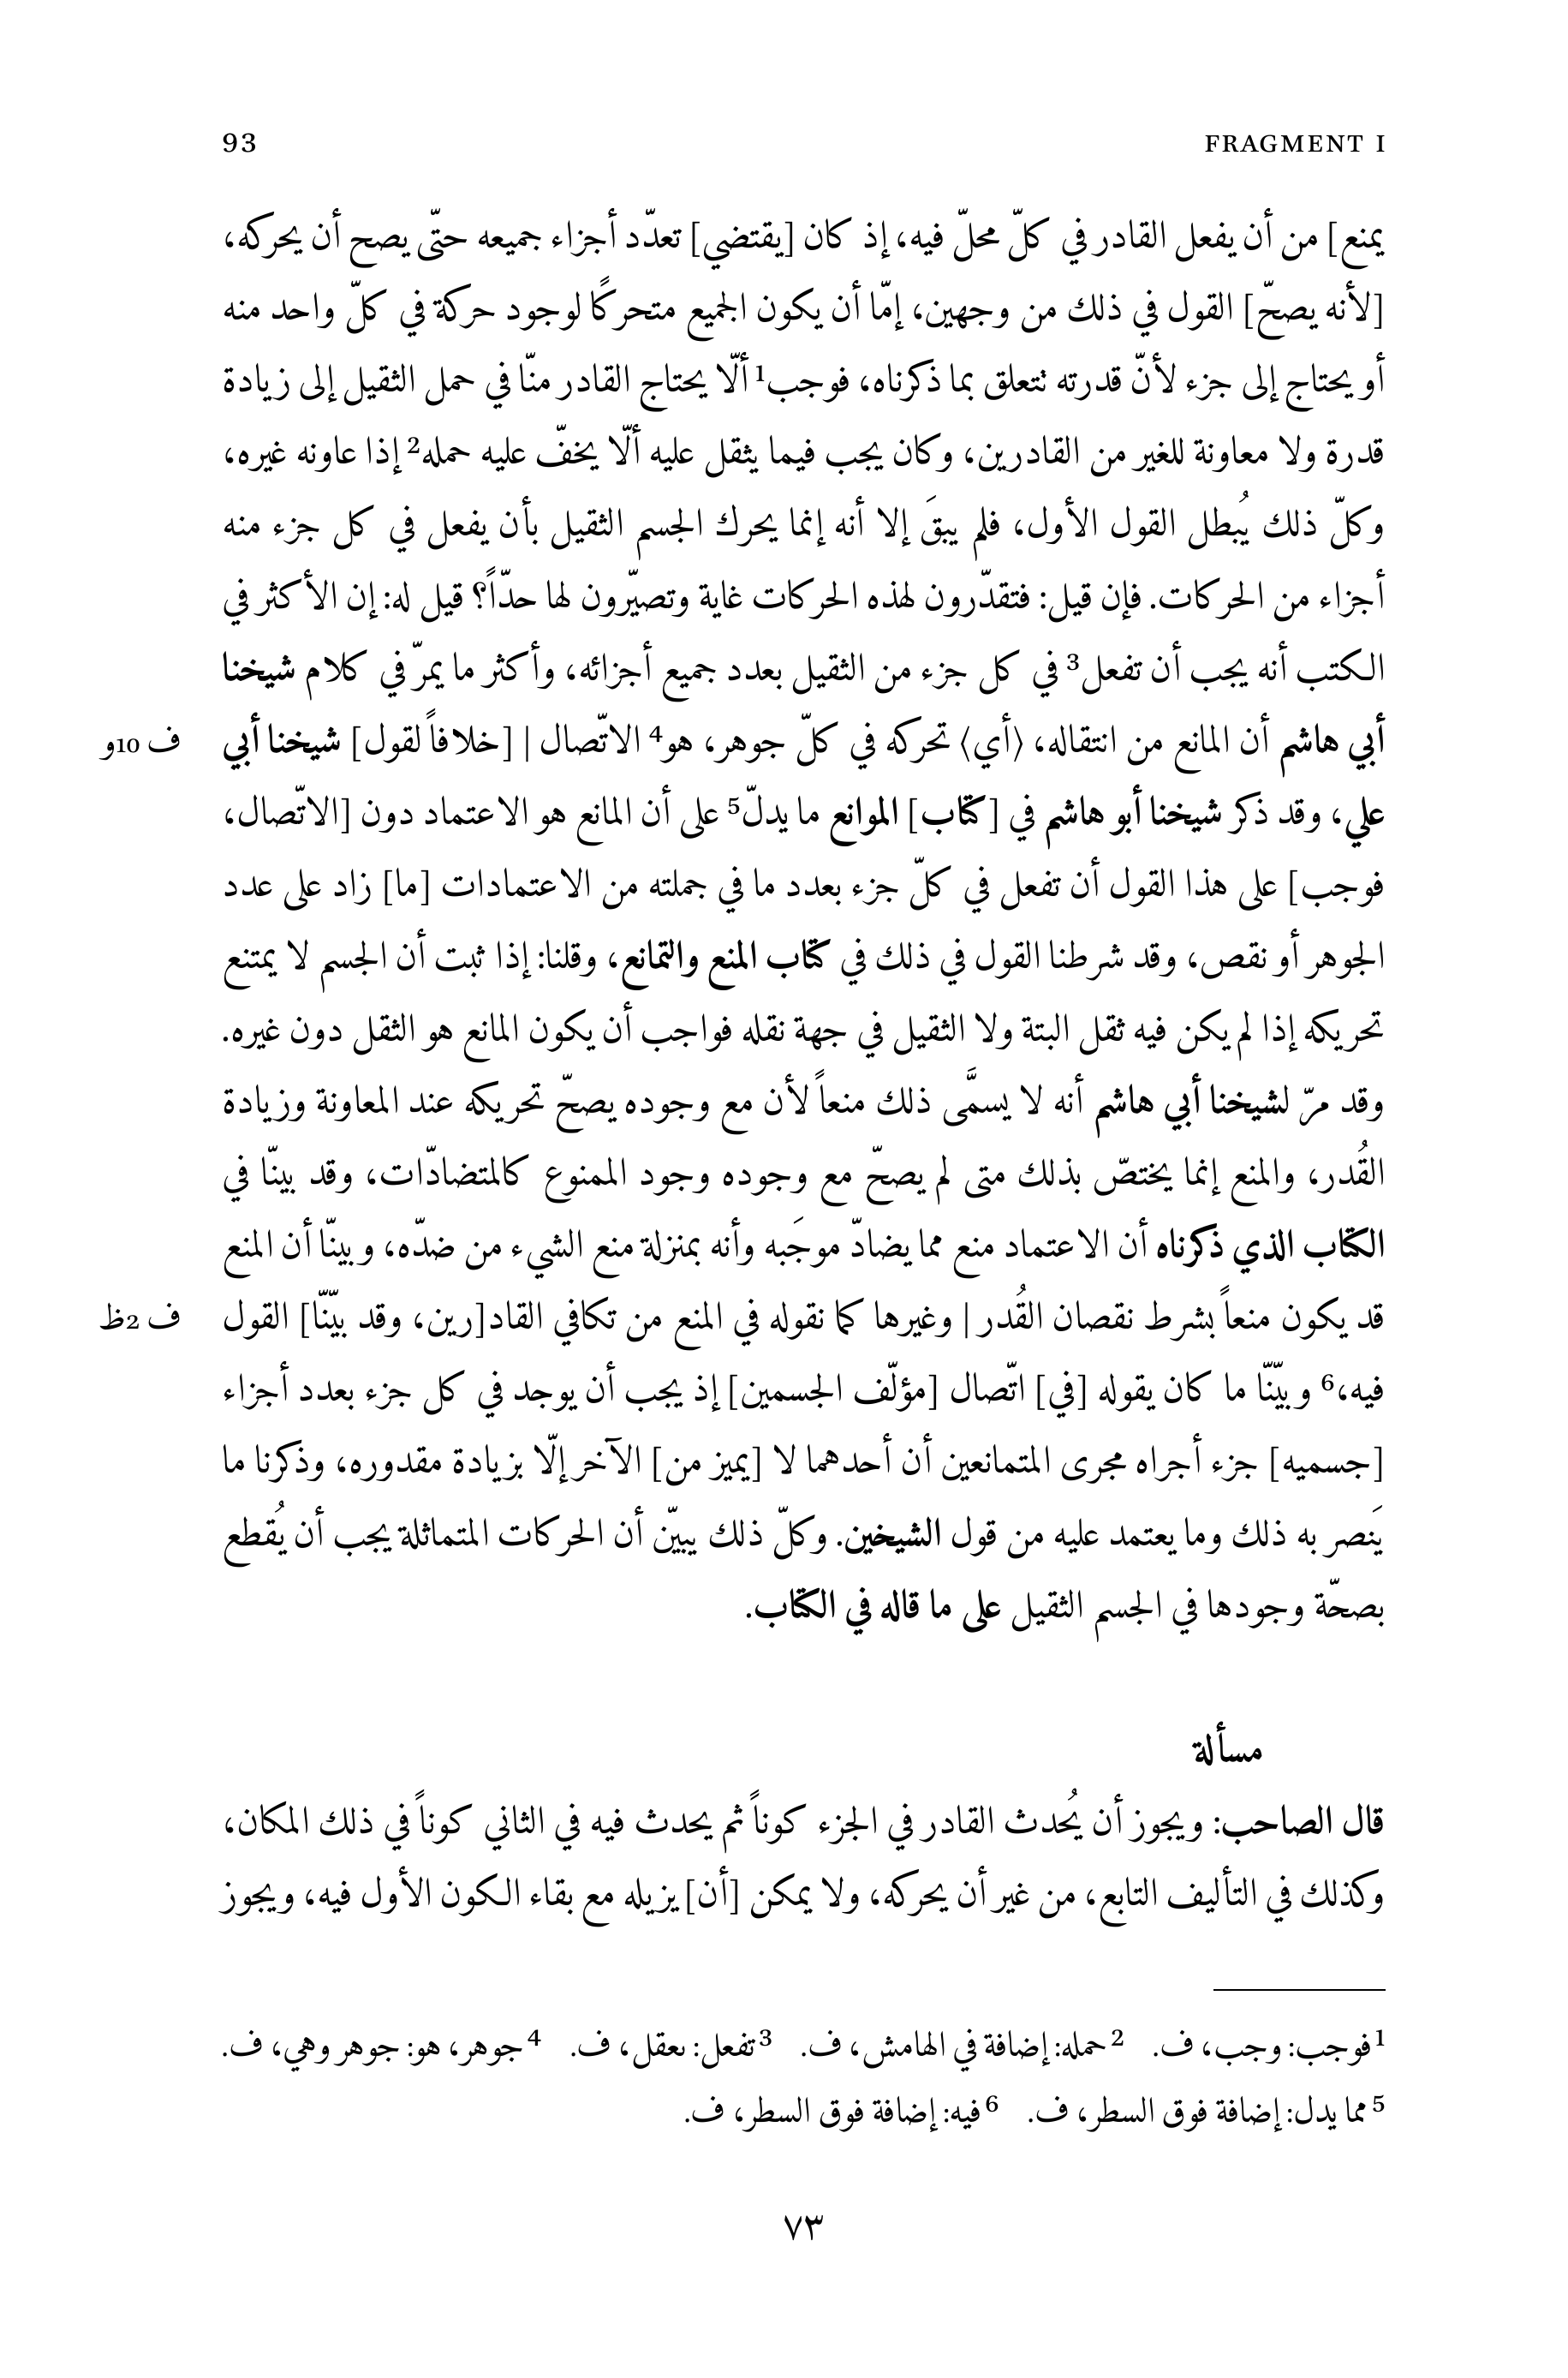 FRAGMENT I 93
يمنع] من أن يفعل القادر في كلّ محلّ فيه، إذ كان [يقتضي] تعدّد أجزاء جميعه حتّى يصح أن يحركه،
[لأنه يصحّ] القول في ذلك من وجهين، إمّا أن يكون الجميع متحركًا لوجود حركة في كلّ واحد منه
أو يحتاج إلى جزء لأنّ قدرته تتعلق بما ذكرناه، فوجب1 ألّا يحتاج القادر منّا في حمل الثقيل إلى زيادة
قدرة ولا معاونة للغير من القادرين، وكان يجب فيما يثقل عليه ألّا يخفّ عليه حمله2 إذا عاونه غيره،
وكلّ ذلك يُبطل القول الأول، فلم يبقَ إلا أنه إنما يحرك الجسم الثقيل بأن يفعل في كل جزء منه
أجزاء من الحركات. فإن قيل: فتقدّرون لهذه الحركات غاية وتصيّرون لها حدّاً؟ قيل له: إن الأكثر في
الكتب أنه يجب أن تفعل3 في كل جزء من الثقيل بعدد جميع أجزائه، وأكثر ما يمرّ في كلام شيخنا
أبي هاشم أن المانع من انتقاله، ⟨أي⟩ تحركه في كلّ جوهر، هو4 الاتّصال | [خلافاً لقول] شيخنا أبي ف 10و
علي، وقد ذكر شيخنا أبو هاشم في [كتاب] الموانع ما يدلّ5 على أن المانع هو الاعتماد دون [الاتّصال،
فوجب] على هذا القول أن تفعل في كلّ جزء بعدد ما في جملته من الاعتمادات [ما] زاد على عدد
الجوهر أو نقص، وقد شرطنا القول في ذلك في كتاب المنع والتمانع، وقلنا: إذا ثبت أن الجسم لا يمتنع
تحريكه إذا لم يكن فيه ثقل البتة ولا الثقيل في جهة نقله فواجب أن يكون المانع هو الثقل دون غيره.
وقد مرّ لشيخنا أبي هاشم أنه لا يسمَّى ذلك منعاً لأن مع وجوده يصحّ تحريكه عند المعاونة وزيادة
القُدر، والمنع إنما يختصّ بذلك متى لم يصحّ مع وجوده وجود الممنوع كالمتضادّات، وقد بينّا في
الكتاب الذي ذكرناه أن الاعتماد منع مما يضادّ موجَبه وأنه بمنزلة منع الشيء من ضدّه، وبينّا أن المنع
قد يكون منعاً بشرط نقصان القُدر | وغيرها كما نقوله في المنع من تكافي القاد[رين، وقد بيّنّا] القول ف 2ظ
فيه،6 وبيّنّا ما كان يقوله [في] اتّصال [مؤلّف الجسمين] إذ يجب أن يوجد في كل جزء بعدد أجزاء
[جسميه] جزء أجراه مجرى المتمانعين أن أحدهما لا [يميز من] الآخر إلّا بزيادة مقدوره، وذكرنا ما
يَنصر به ذلك وما يعتمد عليه من قول الشيخين. وكلّ ذلك يبيّن أن الحركات المتماثلة يجب أن يُقطع
بصحّة وجودها في الجسم الثقيل على ما قاله في الكتاب.
مسألة
قال الصاحب: ويجوز أن يُحدث القادر في الجزء كوناً ثم يحدث فيه في الثاني كوناً في ذلك المكان،
وكذلك في التأليف التابع، من غير أن يحركه، ولا يمكن [أن] يزيله مع بقاء الكون الأول فيه، ويجوز
1 فوجب: وجب، ف. 2 حمله: إضافة في الهامش، ف. 3 تفعل: ىعقل، ف. 4 جوهر، هو: جوهر وهي، ف.
5 مما يدل: إضافة فوق السطر، ف. 6 فيه: إضافة فوق السطر، ف.
٧٣